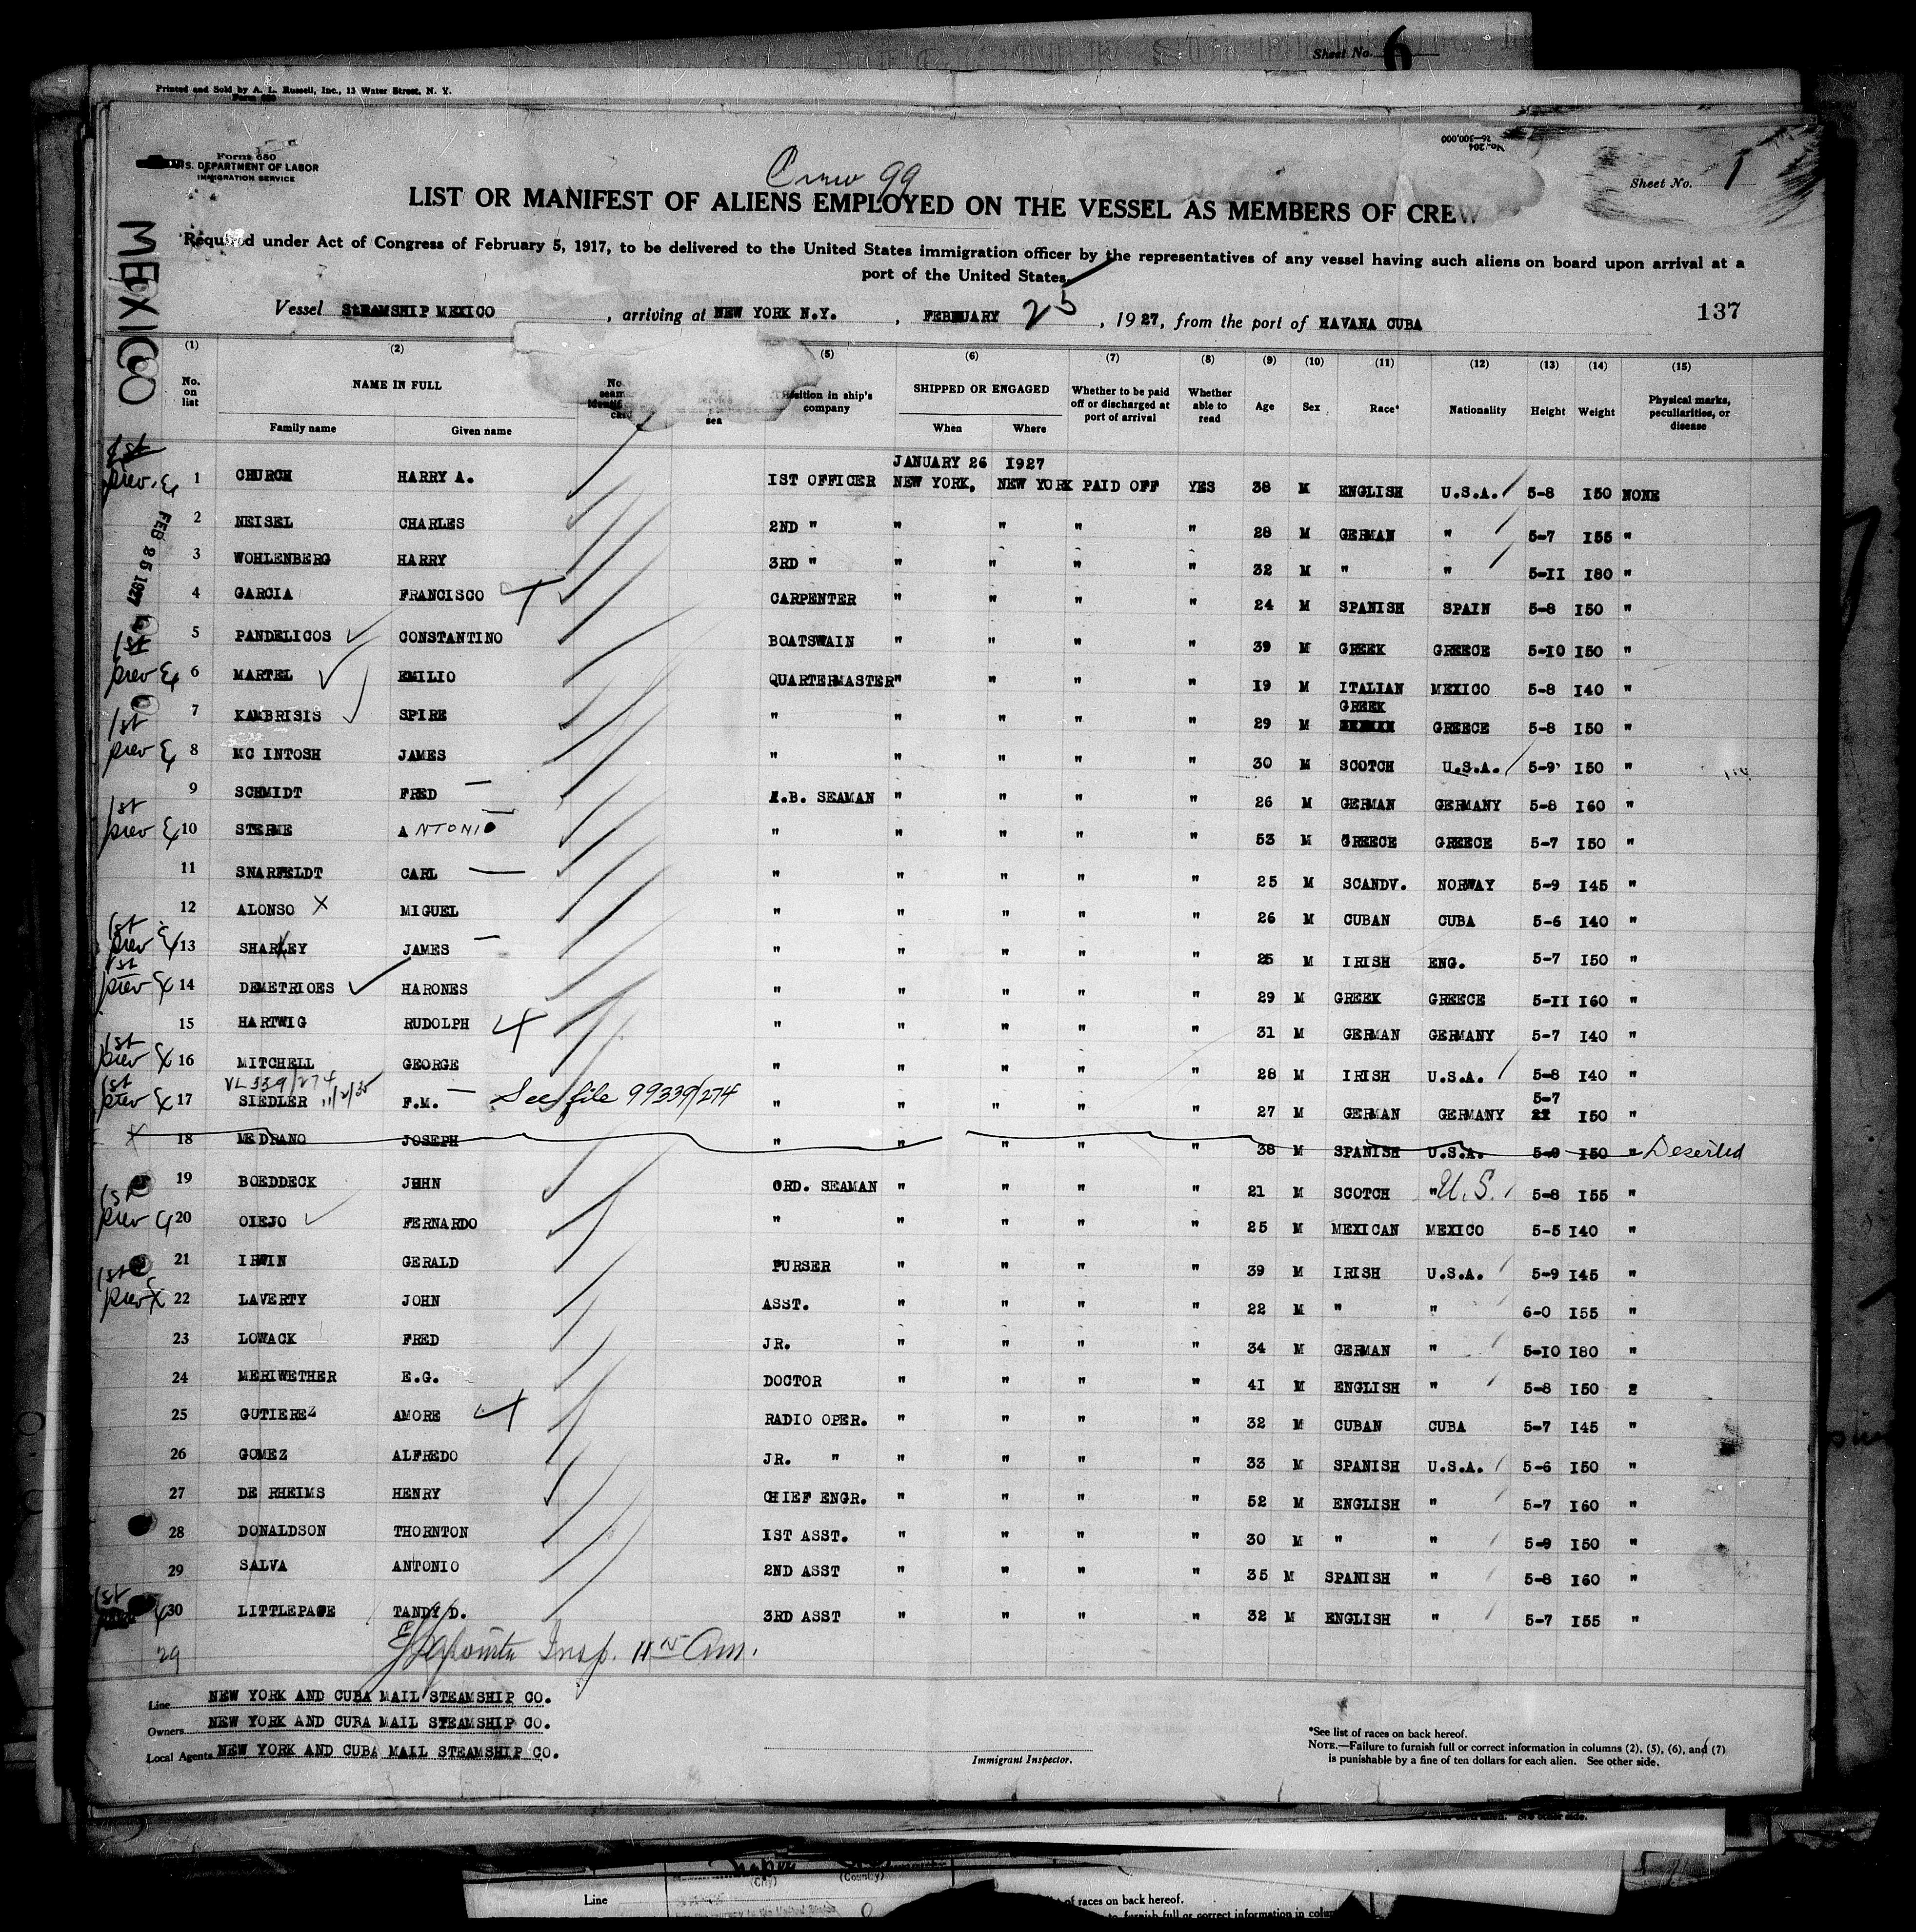 Sheet No. 6
Printed and Sold by A. L. Russell, Inc., 13 Water Street, N. Y.
Form 680
U.S. DEPARTMENT OF LABOR
IMMIGRATION SERVICE
No. 204
26—300,000
Crew 99
Sheet No. 1
LIST OR MANIFEST OF ALIENS EMPLOYED ON THE VESSEL AS MEMBERS OF CREW
Required under Act of Congress of February 5, 1917, to be delivered to the United States immigration officer by the representatives of any vessel having such aliens on board upon arrival at a
port of the United States
MEXICO
Vessel STEAMSHIP MEXICO, arriving at NEW YORK N.Y., FEBRUARY 25, 1927, from the port of HAVANA CUBA 137
(1) (2) (5) (6) (7) (8) (9) (10) (11) (12) (13) (14) (15)
No. on list NAME IN FULL Position in ship's company SHIPPED OR ENGAGED Whether to be paid off or discharged at port of arrival Whether able to read Age Sex Race* Nationality Height Weight Physical marks, peculiarities, or disease
Family name Given name sea When Where
JANUARY 26 1927
1st
prev. 1 CHURCH HARRY A. 1ST OFFICER NEW YORK, NEW YORK PAID OFF YES 38 M ENGLISH U.S.A. 5-8 150 NONE
2 NEISEL CHARLES 2ND " " " " " 28 M GERMAN " 5-7 155 "
FEB 25 1927
3 WOHLENBERG HARRY 3RD " " " " " 32 M " " 5-11 180 "
4 GARCIA FRANCISCO CARPENTER " " " " 24 M SPANISH SPAIN 5-8 150 "
5 PANDELICOS CONSTANTINO BOATSWAIN " " " " 39 M GREEK GREECE 5-10 150 "
1st
prev 6 MARTEL EMILIO QUARTERMASTER " " " " 19 M ITALIAN MEXICO 5-8 140 "
7 KAMBRISIS SPIRE " " " " " 29 M GREEK GREECE 5-8 150 "
1st
prev 8 MC INTOSH JAMES " " " " " 30 M SCOTCH U.S.A. 5-9 150 "
9 SCHMIDT FRED A.B. SEAMAN " " " " 26 M GERMAN GERMANY 5-8 160 "
1st
prev 10 STERME ANTONIO " " " " " 53 M GREECE GREECE 5-7 150 "
11 SNARFELDT CARL " " " " " 25 M SCANDV. NORWAY 5-9 145 "
12 ALONSO X MIGUEL " " " " " 26 M CUBAN CUBA 5-6 140 "
1st
prev 13 SHARKEY JAMES " " " " " 25 M IRISH ENG. 5-7 150 "
1st
prev 14 DEMETRIOES HARONES " " " " " 29 M GREEK GREECE 5-11 160 "
15 HARTWIG RUDOLPH " " " " " 31 M GERMAN GERMANY 5-7 140 "
1st
prev 16 MITCHELL GEORGE " " " " " 28 M IRISH U.S.A. 5-8 140 "
VL 339/274
1st
prev 17 SIEDLER 11/2/35 F.M. See file 99339/274 " " " " " 27 M GERMAN GERMANY 5-7 150 "
X 18 MEDRANO JOSEPH " " " " " 38 M SPANISH U.S.A. 5-9 150 " Deserted
19 BOEDDECK JOHN ORD. SEAMAN " " " " 21 M SCOTCH " U.S. 5-8 155 "
1st
prev 20 OIEJO FERNARDO " " " " " 25 M MEXICAN MEXICO 5-5 140 "
21 IRWIN GERALD PURSER " " " " 39 M IRISH U.S.A. 5-9 145 "
1st
prev 22 LAVERTY JOHN ASST. " " " " 22 M " " 6-0 155 "
23 LOWACK FRED JR. " " " " 34 M GERMAN " 5-10 180 "
24 MERIWETHER E.G. DOCTOR " " " " 41 M ENGLISH " 5-8 150 2
25 GUTIEREZ AMORE RADIO OPER. " " " " 32 M CUBAN CUBA 5-7 145 "
26 GOMEZ ALFREDO JR. " " " " " 33 M SPANISH U.S.A. 5-6 150 "
27 DE RHEIMS HENRY CHIEF ENGR. " " " " 52 M ENGLISH " 5-7 160 "
28 DONALDSON THORNTON 1ST ASST. " " " " 30 M " " 5-9 150 "
29 SALVA ANTONIO 2ND ASST " " " " 35 M SPANISH " 5-8 160 "
1st
30 LITTLEPAGE TANDY D. 3RD ASST " " " " 32 M ENGLISH " 5-7 155 "
29 Insp. 11 15 Am.
Line NEW YORK AND CUBA MAIL STEAMSHIP CO.
Owners NEW YORK AND CUBA MAIL STEAMSHIP CO.
Local Agents NEW YORK AND CUBA MAIL STEAMSHIP CO.
Immigrant Inspector.
*See list of races on back hereof.
NOTE.—Failure to furnish full or correct information in columns (2), (5), (6), and (7)
is punishable by a fine of ten dollars for each alien. See other side.
See other side.
(City) (County)
Line
of races on back hereof.
to furnish full or correct information in colum